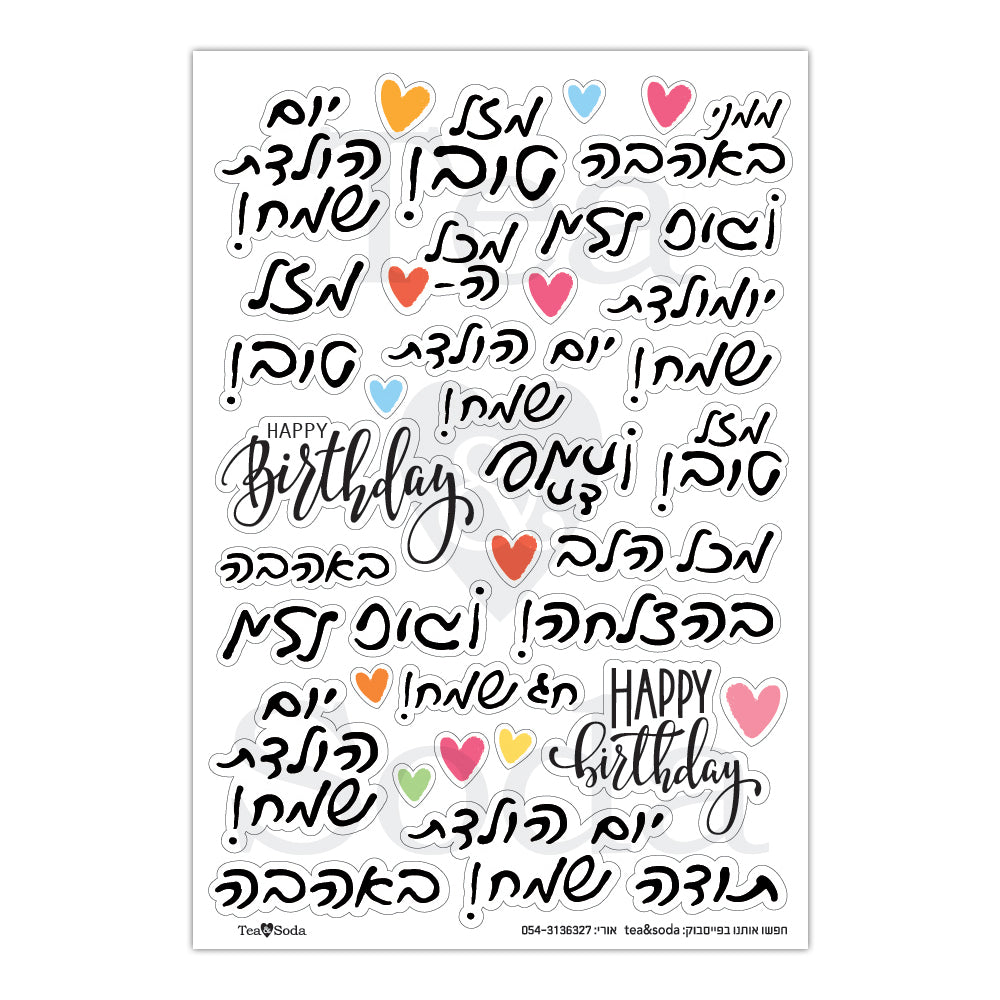 ממני
באהבה
מזל
טוב!
יום
הולדת
שמח!
מזל טוב!
מכל
ה-
מזל
טוב!
יומולדת
שמח!
יום הולדת
שמח!
מזל
טוב!
HAPPY
Birthday
מכל הלב
באהבה
בהצלחה!
מזל טוב!
חג שמח!
HAPPY
birthday
יום
הולדת
שמח!
יום הולדת
שמח!
תודה
באהבה
חפשו אותנו בפייסבוק: tea&soda אורי: 054-3136327
Tea&Soda
Tea
&
Soda